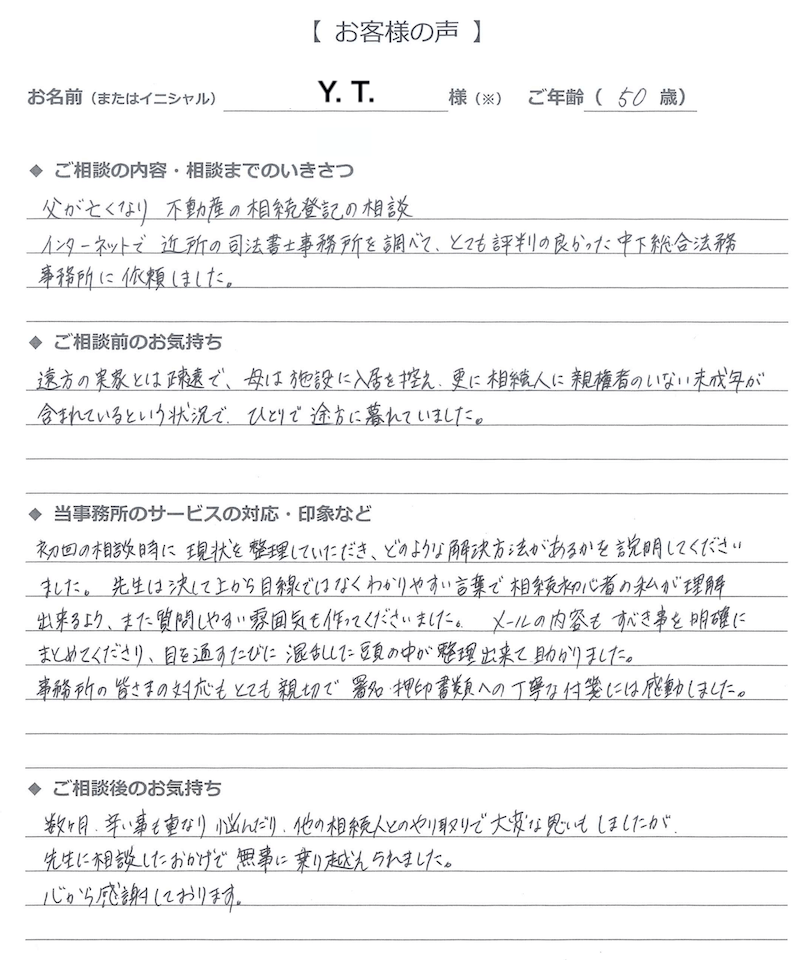 【 お客様の声 】
お名前（またはイニシャル） Y. T. 様（※） ご年齢（ 50 歳）
◆ ご相談の内容・相談までのいきさつ
父が亡くなり 不動産の相続登記の相談
インターネットで 近所の司法書士事務所を調べて、とても評判の良かった中下総合法務
事務所に依頼しました。
◆ ご相談前のお気持ち
遠方の実家とは疎遠で、母は施設に入居を控え、更に相続人に親権者のいない未成年が
含まれているという状況で、ひとりで途方に暮れていました。
◆ 当事務所のサービスの対応・印象など
初回の相談時に 現状を整理していただき、どのような解決方法があるかを説明してください
ました。 先生は決して上から目線ではなくわかりやすい言葉で相続初心者の私が理解
出来るよう、また質問しやすい雰囲気も作ってくださいました。 メールの内容も すべき事を明確に
まとめてくださり、目を通すたびに 混乱した頭の中が整理出来て助かりました。
事務所の皆さまの対応もとても親切で 署名・押印書類への丁寧な付箋には感動しました。
◆ ご相談後のお気持ち
数ヶ月、辛い事も重なり 悩んだり、他の相続人とのやり取りで大変な思いもしましたが、
先生に相談したおかげで 無事に乗り越えられました。
心から感謝しております。